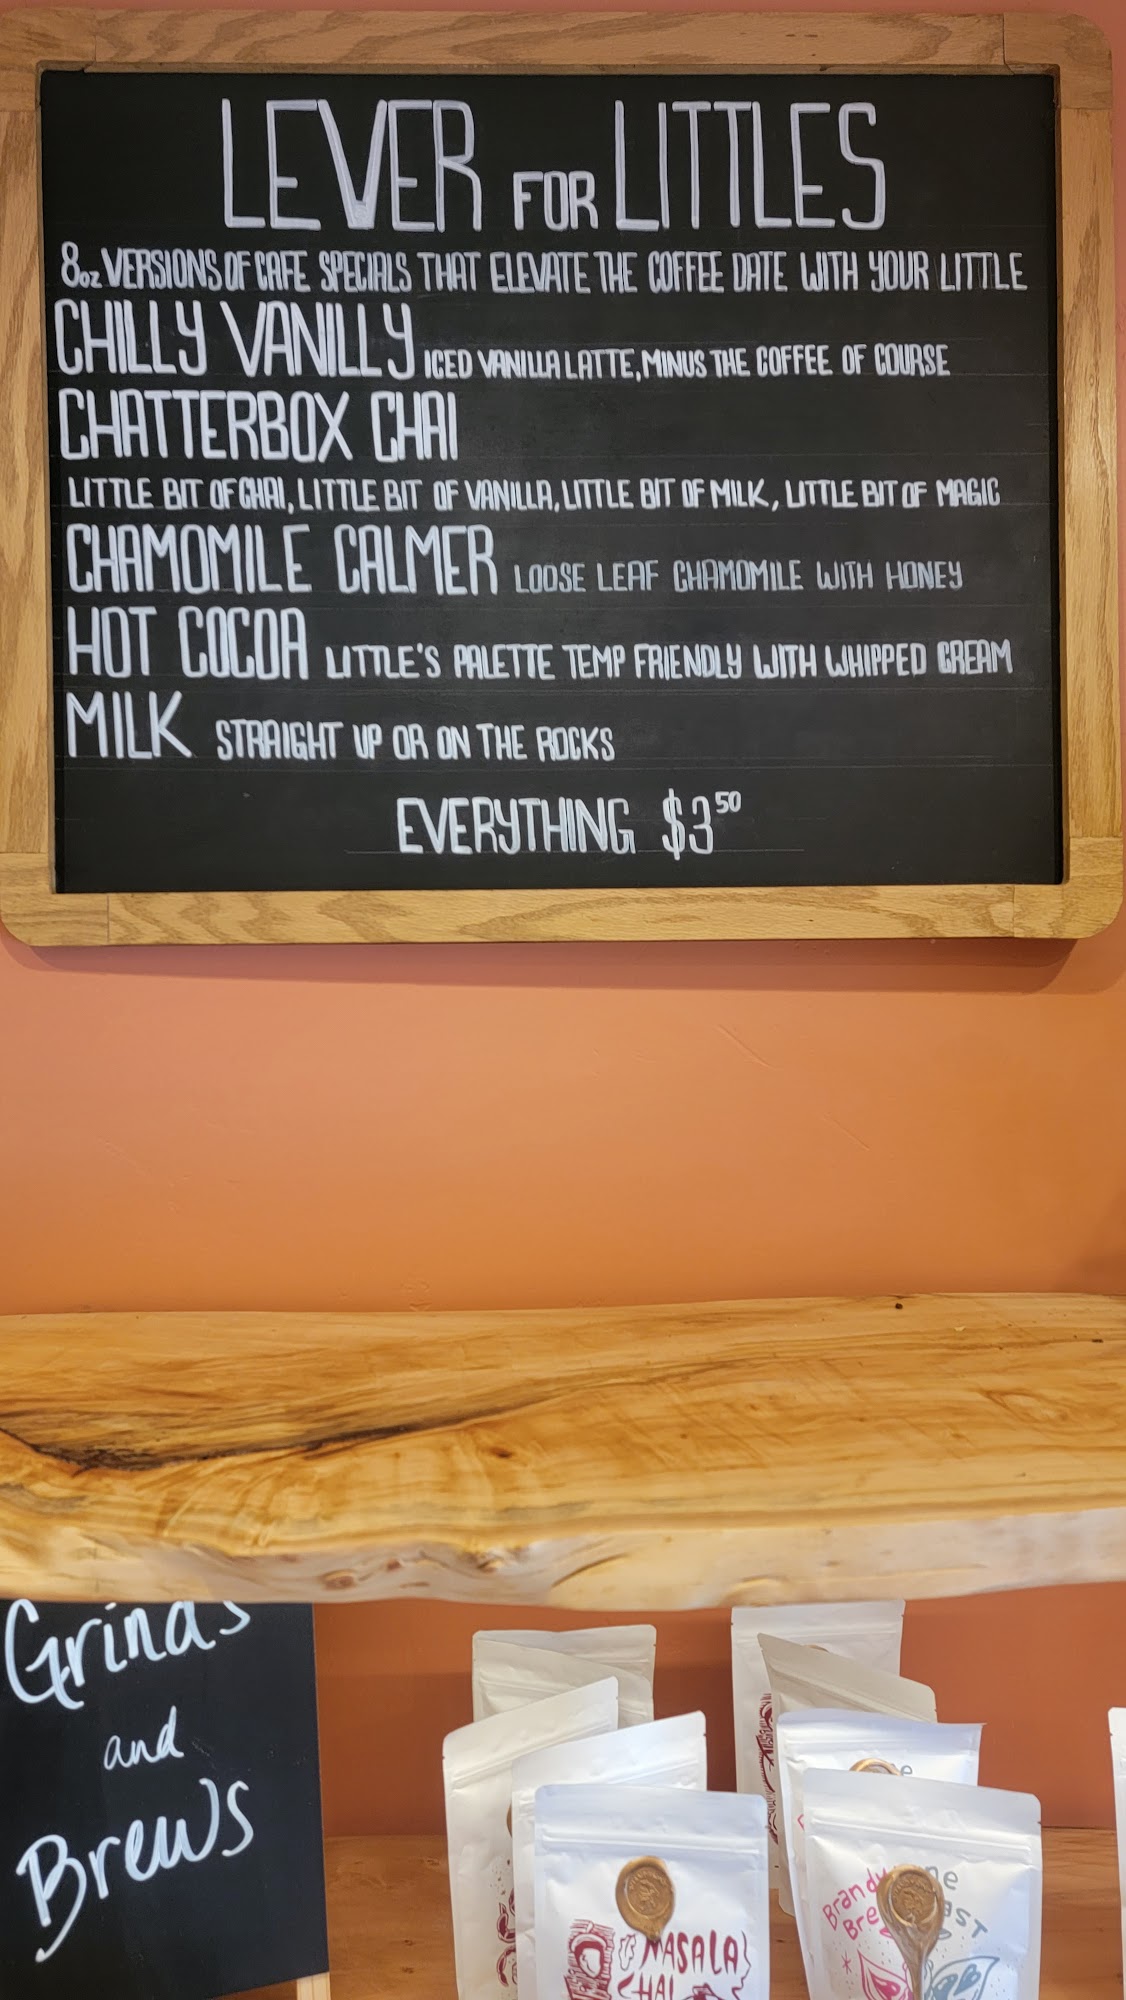 LEVER FOR LITTLES
8oz VERSIONS OF CAFE SPECIALS THAT ELEVATE THE COFFEE DATE WITH YOUR LITTLE
CHILLY VANILLY ICED VANILLA LATTE, MINUS THE COFFEE OF COURSE
CHATTERBOX CHAI
LITTLE BIT OF CHAI, LITTLE BIT OF VANILLA, LITTLE BIT OF MILK, LITTLE BIT OF MAGIC
CHAMOMILE CALMER LOOSE LEAF CHAMOMILE WITH HONEY
HOT COCOA LITTLE'S PALETTE TEMP FRIENDLY WITH WHIPPED CREAM
MILK STRAIGHT UP OR ON THE ROCKS
EVERYTHING $3 50
Grinds
and
Brews
MASALA